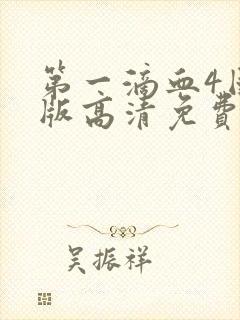 第一滴血4国
版高清免费
吴振祥